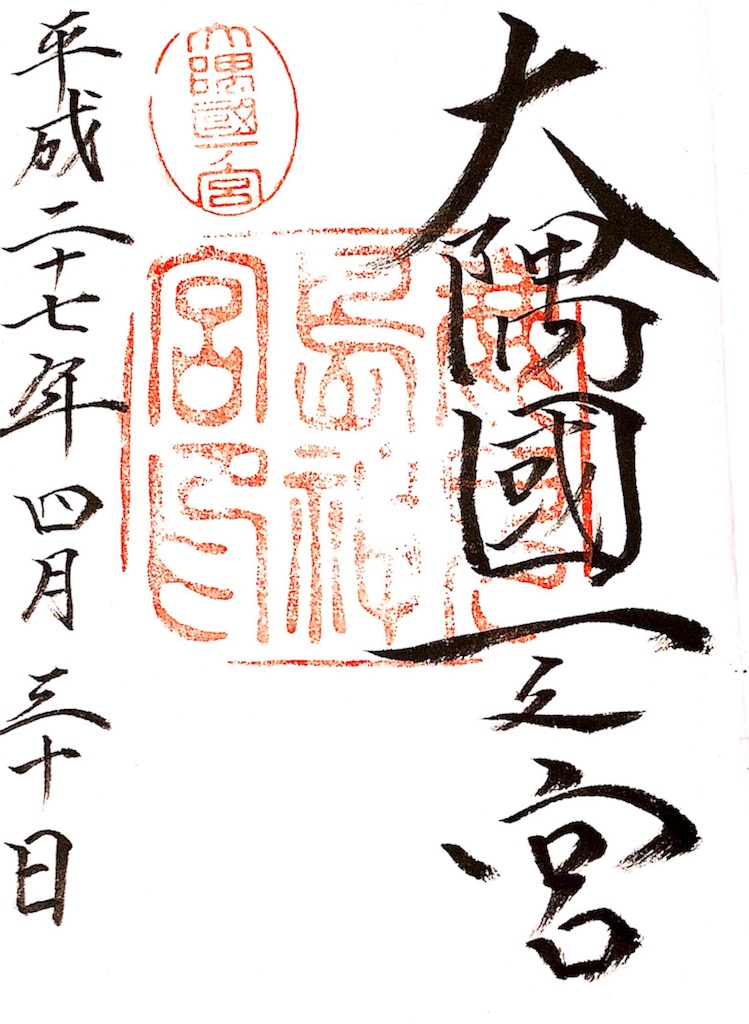 大隅國一之宮
大隅國一ノ宮
鹿兒
島神
宮印
平成二十七年四月三十日